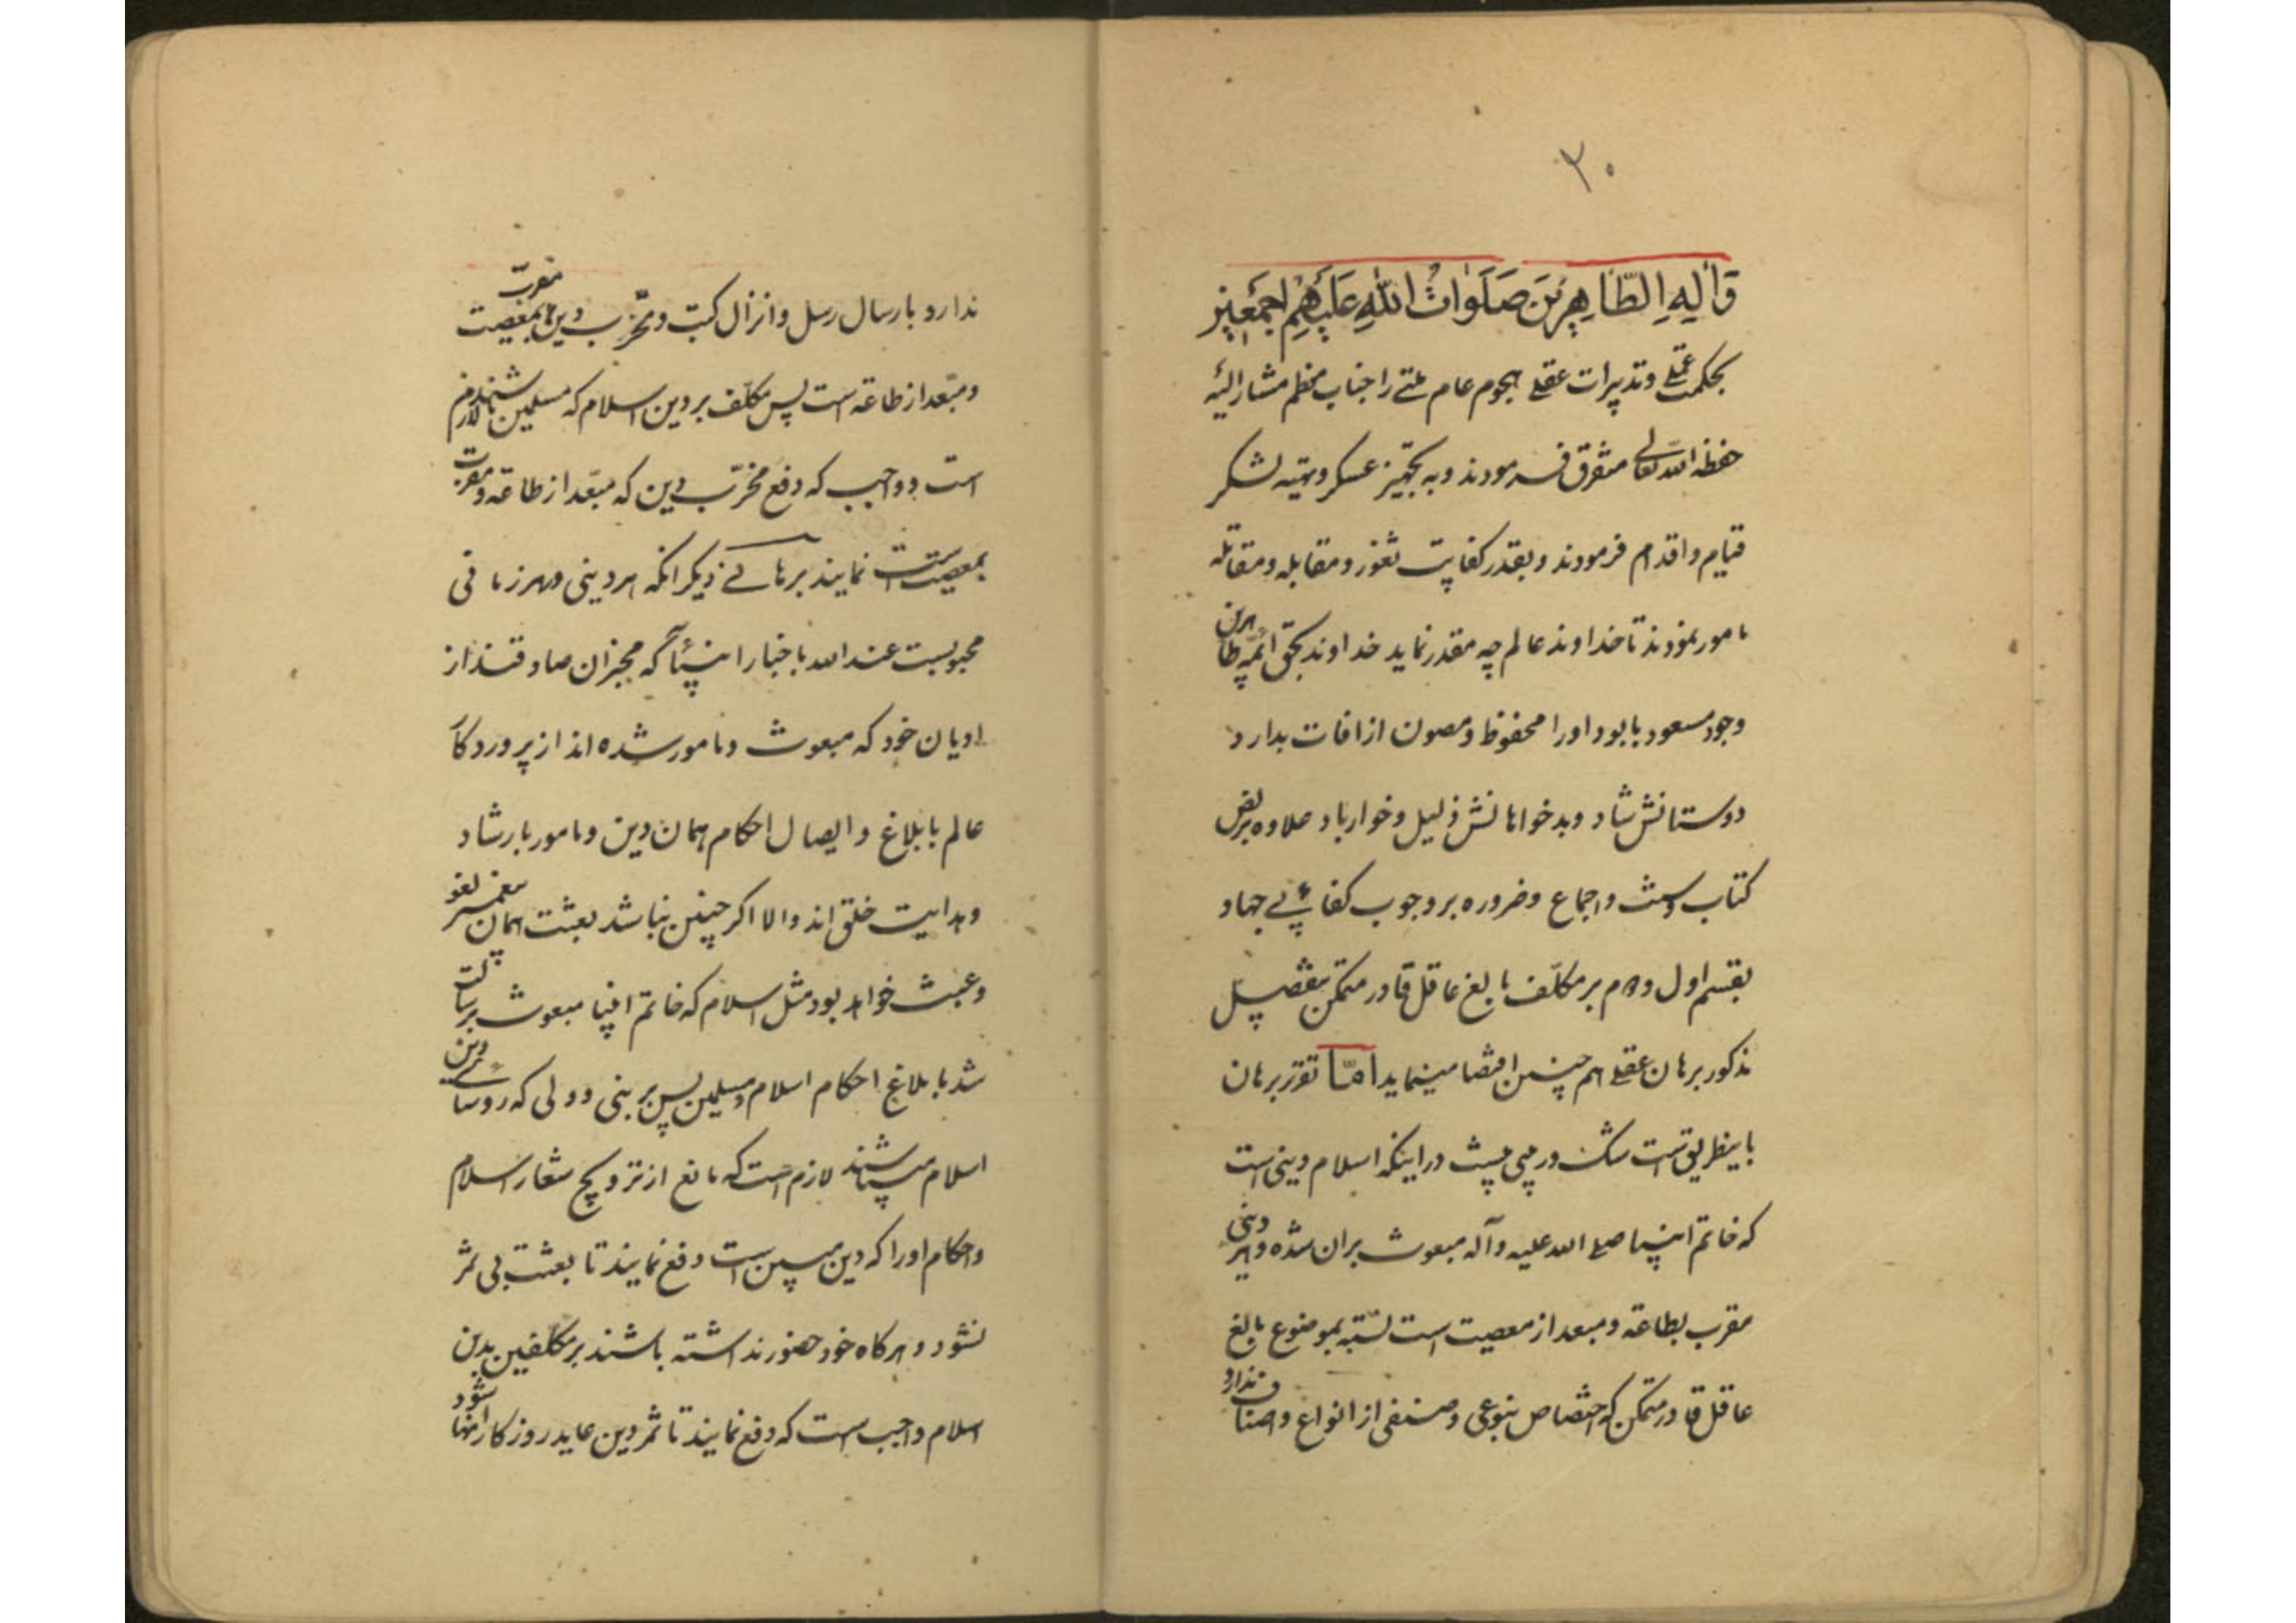 ۲۰
وَالِهِ الطَّاهِرِينَ صَلَوَاتُ اللهِ عَلَيْهِمْ اَجْمَعِين
بحکمت عملی و تدبیرات عقلی هجوم عام ملتی را جناب معظم مشارالیه
حفظه الله تعالی متفرق فرمودند و به تجهیز عسکر و تهیه لشکر
قیام و اقدام فرمودند و بقدر کفایت ثغور و مقابله و مقاتله
مامور نمودند تا خداوند عالم چه مقدر نماید خداوند بحق ائمه طاهرین
وجود مسعود با بود او را محفوظ و مصون از افات بدارد
دوستانش شاد و بدخواهانش ذلیل و خوار باد علاوه بر نص
کتاب و سنت و اجماع و ضروره بر وجوب کفائی جهاد
بقسم اول و دوم بر مکلف بالغ عاقل قادر متمکن بتفصیل
مذکور برهان عقلی هم چنین اقتضا مینماید امّا تقریر برهان
باینطریق است شک و رمی نیست در اینکه اسلام دینی است
که خاتم انبیا صلی الله علیه و آله مبعوث بران شده و هر دینی
مقرب بطاعه و مبعد از معصیت است نسبته بموضوع بالغ
عاقل قادر متمکن که اختصاص بنوعی و صنفی از انواع و اصناف ندارد
ندارد بارسال رسل و انزال کتب و مخرّب دینها مقرّب بمعصیت
و مبعّد از طاعه است پس مکلّف بر دین اسلام که مسلمین باشند لازم
است و واجب که دفع مخرّب دین که مبعّد از طاعه و مقرب
بمعصیت است نمایند برهانی دیگر انکه هر دینی در هر زمانی
محبوبست عند الله باخبار انبیائی که مخبران صادقند از
ادیان خود که مبعوث و مامور شده اند از پروردکار
عالم بابلاغ و ایصال احکام همان دین و مامور بارشاد
و هدایت خلق اند والا اکر چنین نباشد بعثت همان پیغمبر لغو
و عبث خواهد بود مثل اسلام که خاتم انبیا مبعوث برسالت
شد بابلاغ احکام اسلام و مسلمین پس بر بنی و ولی که روسای دین
اسلام میباشند لازم است که مانع از ترویج شعار اسلام
و احکام او را که دین مبین است دفع نمایند تا بعثت بی ثمر
نشود و هرکاه خود حضور نداشته باشند بر مکلفین بدین
اسلام واجب است که دفع نمایند تا ثمر دین عاید روزکار انها شود